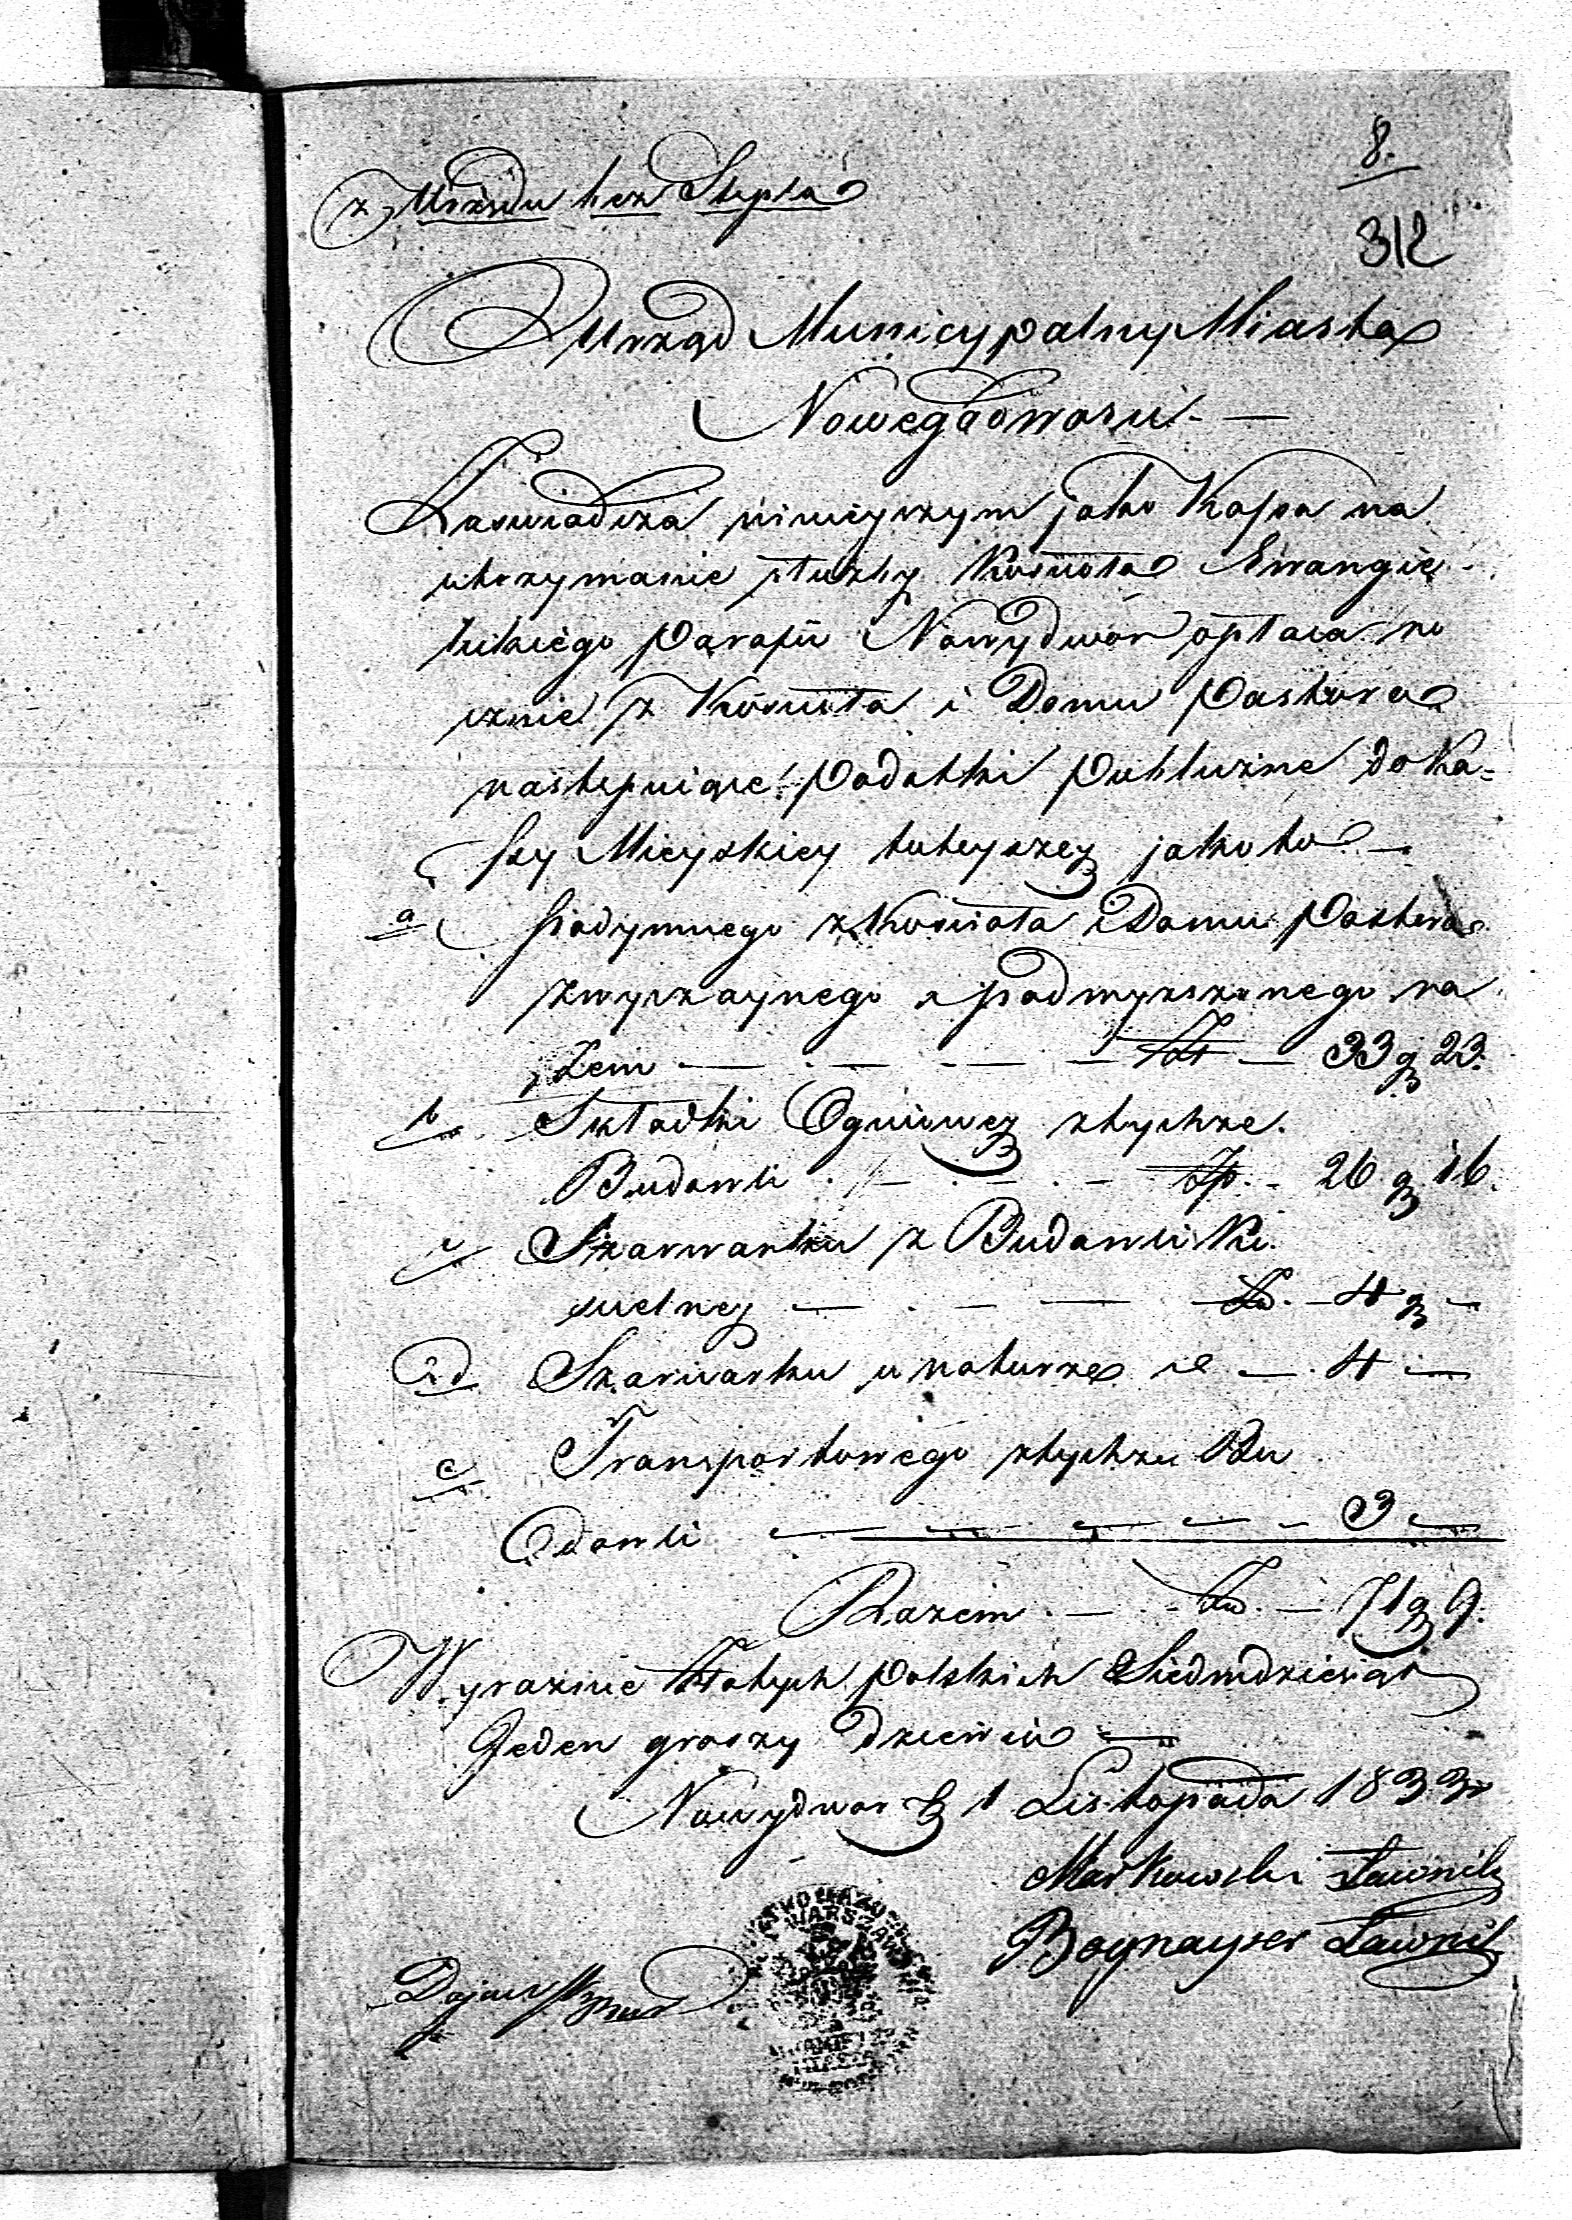 8.
z Urzędu bez Stępla
312
Urząd Municypalny Miasta
Nowegodworu. —
Zaswiadcza ninieyszym jako Kassa na
utrzymanie służby Kościoła Ewangie-
lickiego Parafii Nowydwór opłaca ro
cznie z Kościoła i Domu Pastora
następuiące Podatki Publiczne do Ka=
ssy Mieyskiey tuteyszey jako to —
a Podymnego z Kościoła i Domu Pastora
zwyczaynego i podwyższonego ra
zem — — — Zł — 33 g 23.
b Składki Ogniowey z tychże
Budowli — — Zp. - 26 g 16.
c Szarwarku z Budowli Ko
scielney — — — Zł. — 4 g —
d Szarwarku w naturze — 4 —
e Transportowego z tychże Bu
dowli — — — — 3 —
Razem — Zł. — 71 g 9.
Wyraźnie Złotych Polskich Siedmdziesiąt
Jeden groszy dziewięć —
Nowydwor d 1 Listopada 1833 r
Markowski Ławnik
Boynayser Ławnik
WARSZAW
MIASTA